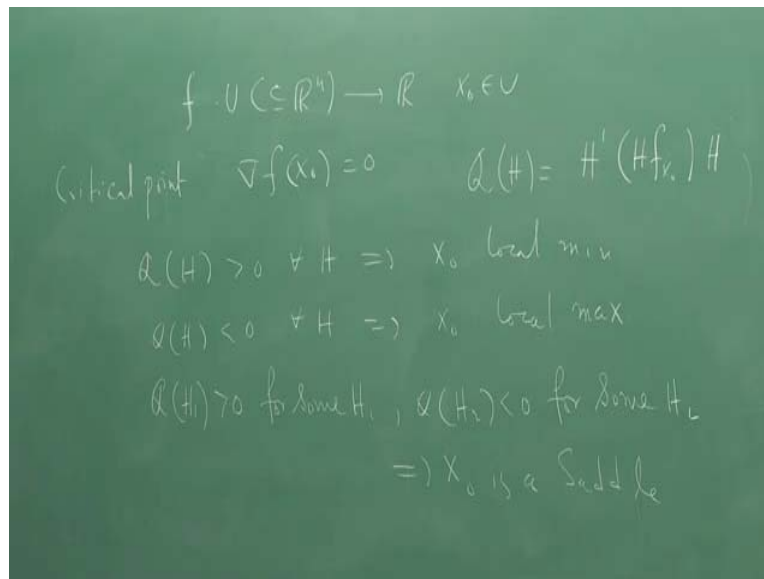 f : U (⊆ ℝⁿ) → ℝ x₀ ∈ U
Critical point ∇f(x₀) = 0 Q(H) = H' (Hf_{x₀}) H
Q(H) > 0 ∀ H ⇒ x₀ local min
Q(H) < 0 ∀ H ⇒ x₀ local max
Q(H₁) > 0 for some H₁, Q(H₂) < 0 for some H₂
⇒ x₀ is a Saddle